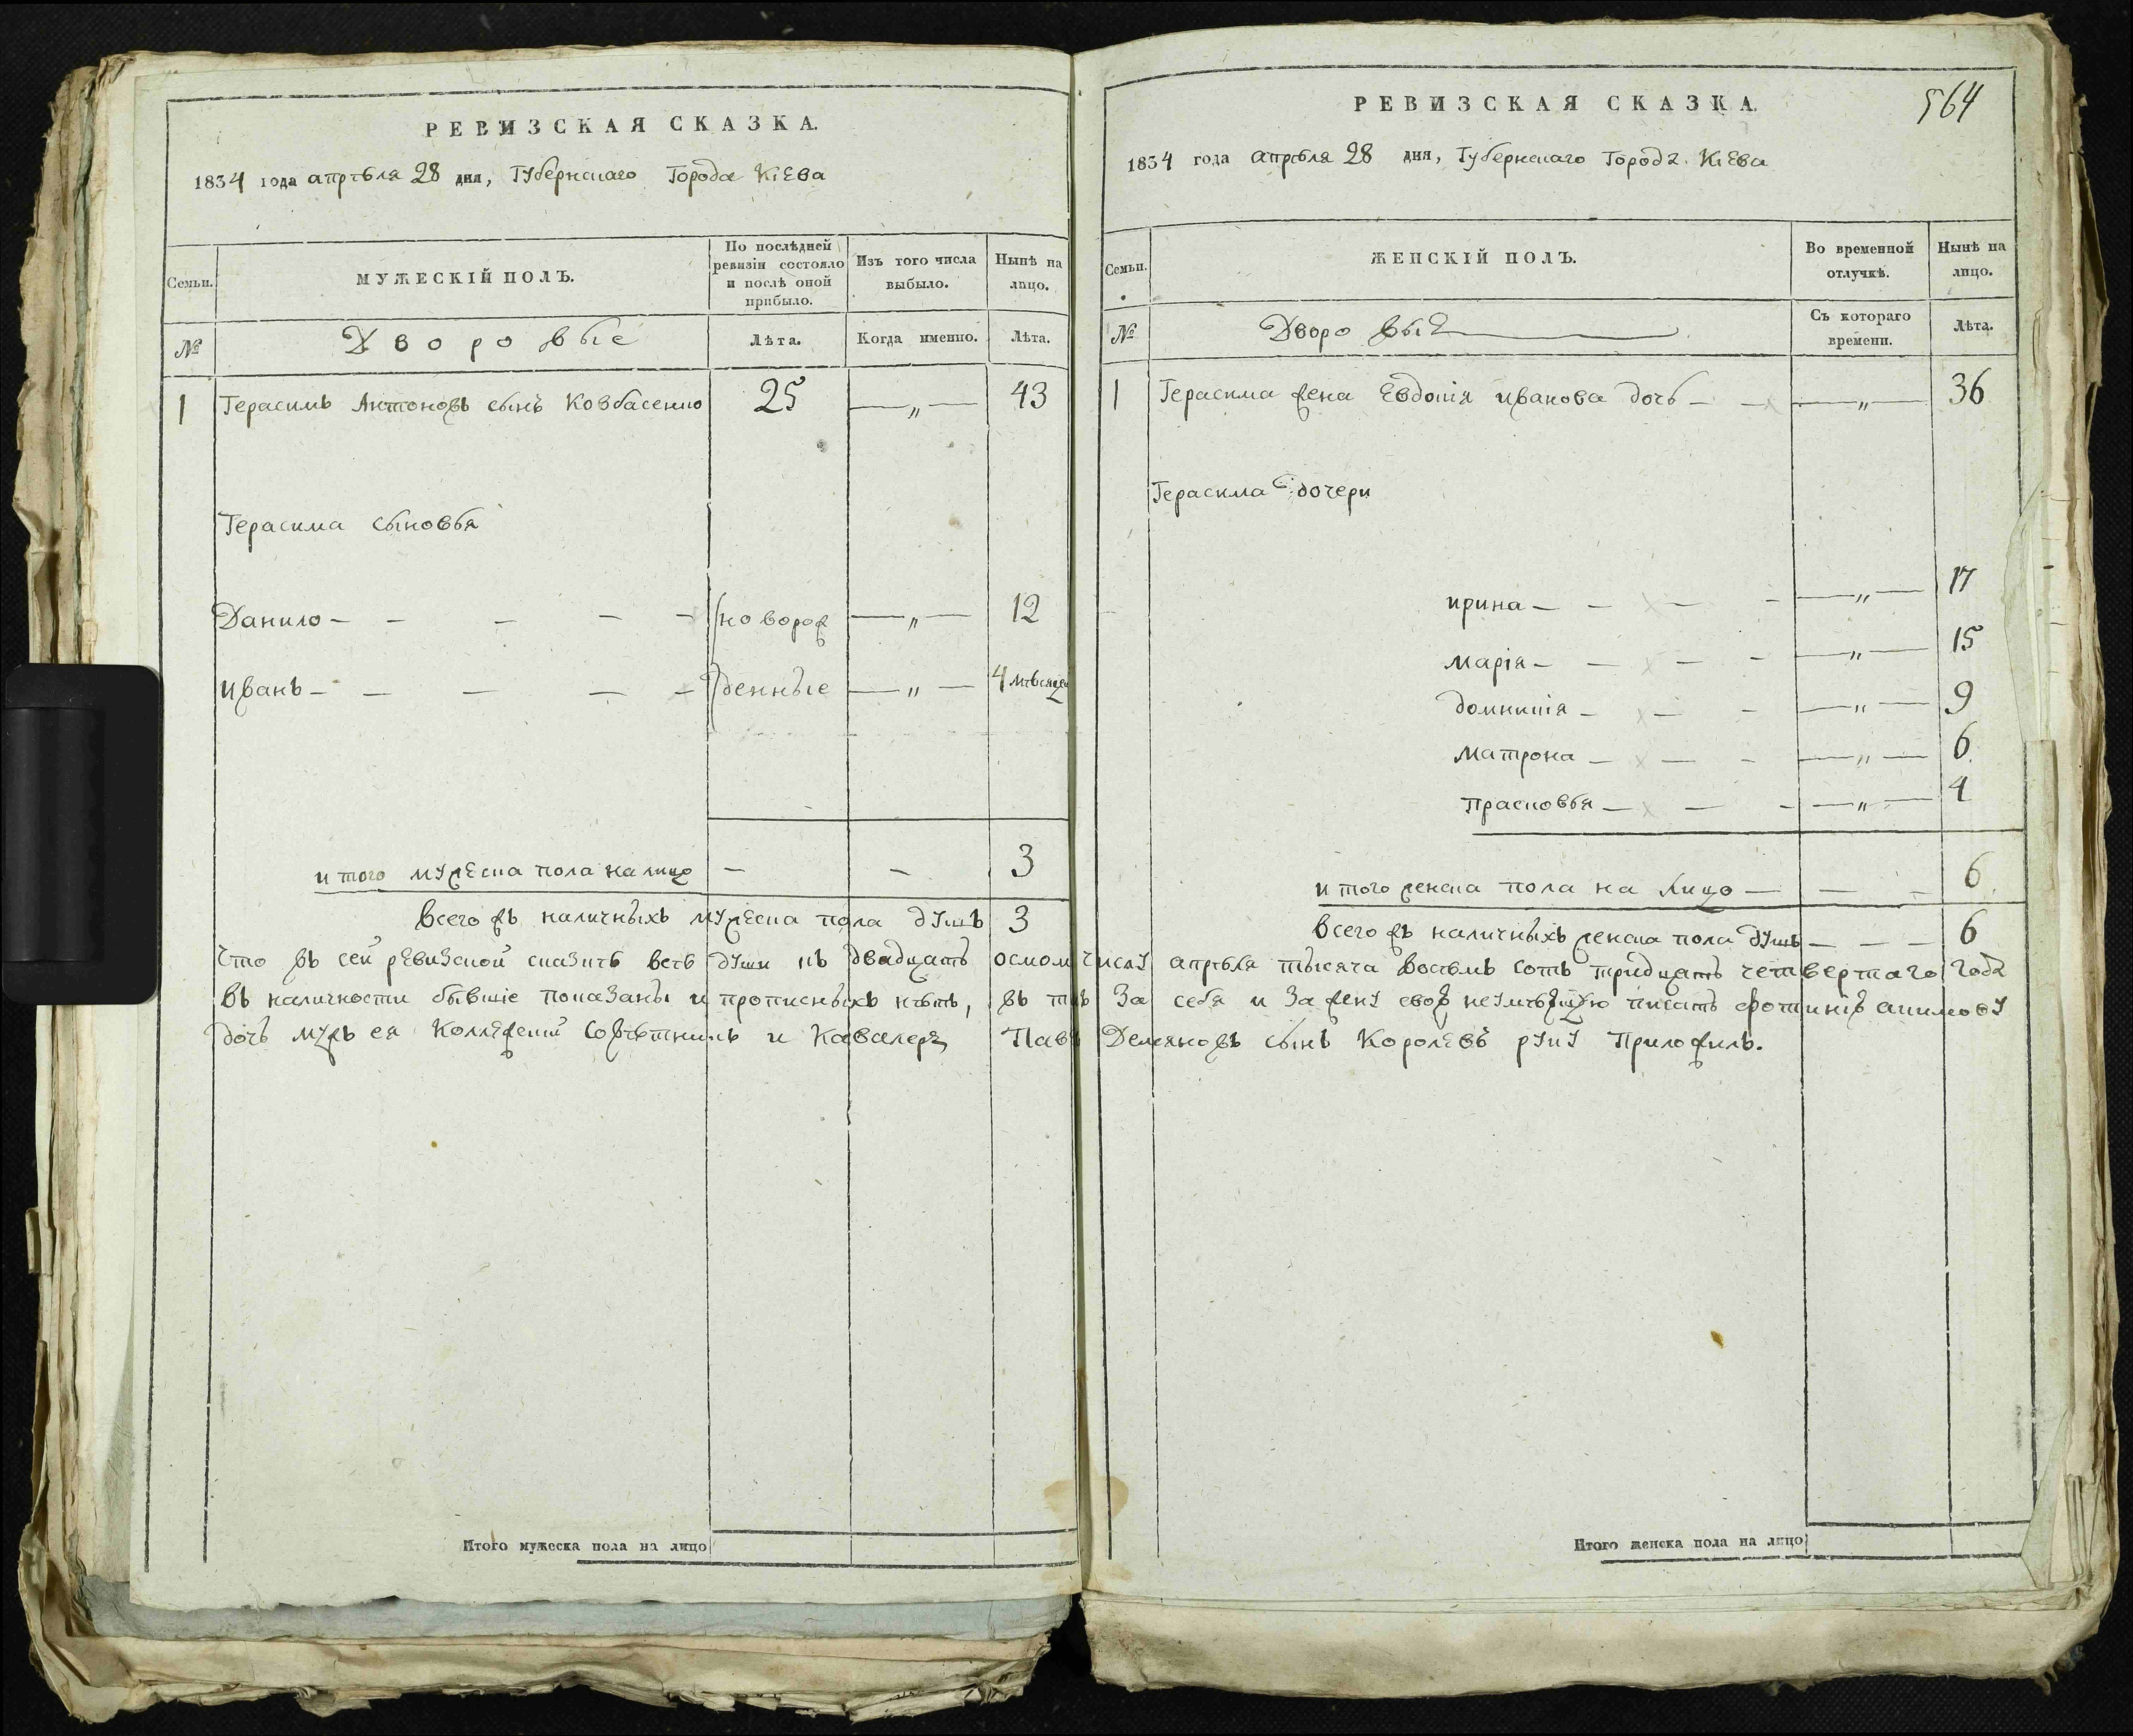 РЕВИЗСКАЯ СКАЗКА.
1834 года апрѣля 28 дня, Губернскаго Города Кіева
Семьи.
МУЖЕСКІЙ ПОЛЪ.
По послѣдней ревизіи состояло и послѣ оной прибыло.
Изъ того числа выбыло.
Нынѣ на лицо.
№
Дворовые
Лѣта.
Когда именно.
Лѣта.
1 Герасимъ Антоновъ сынъ Ковбасенко 25 —„— 43
Герасима сыновья
Данило — — — — — новорож —„— 12
Иванъ — — — — — денные —„— 4 мѣсяце
и того мужеска пола на лицо — — 3
Всего жъ наличныхъ мужеска пола душъ 3
Что въ сей ревизской сказкѣ всѣ души къ двадцать осмом
въ наличности бывшіе показаны и прописныхъ нѣтъ, въ
дочь мужъ ея Коллежскій Совѣтникъ и Кавалеръ
Итого мужеска пола на лицо
РЕВИЗСКАЯ СКАЗКА.
564
1834 года апрѣля 28 дня, Губернскаго Города Кіева
Семьи.
ЖЕНСКІЙ ПОЛЪ.
Во временной отлучкѣ.
Нынѣ на лицо.
№
Дворовые
Съ котораго времени.
Лѣта.
1 Герасима жена Евдокія иванова дочь — — —„— 36
Герасима дочери
ирина — — — — —„— 17
марія — — — — —„— 15
домникія — — — —„— 9
матрона — — — —„— 6
прасковья — — — —„— 4
и того женска пола на лицо — — — 6
Всего жъ наличныхъ женска пола душъ — — — 6
числу апрѣля тысяча восемь сотъ тридцать четвертаго года
За себя и За жену свою неумѣющую писать
Демяновъ сынъ Королевъ руку Приложилъ.
Итого женска пола на лицо